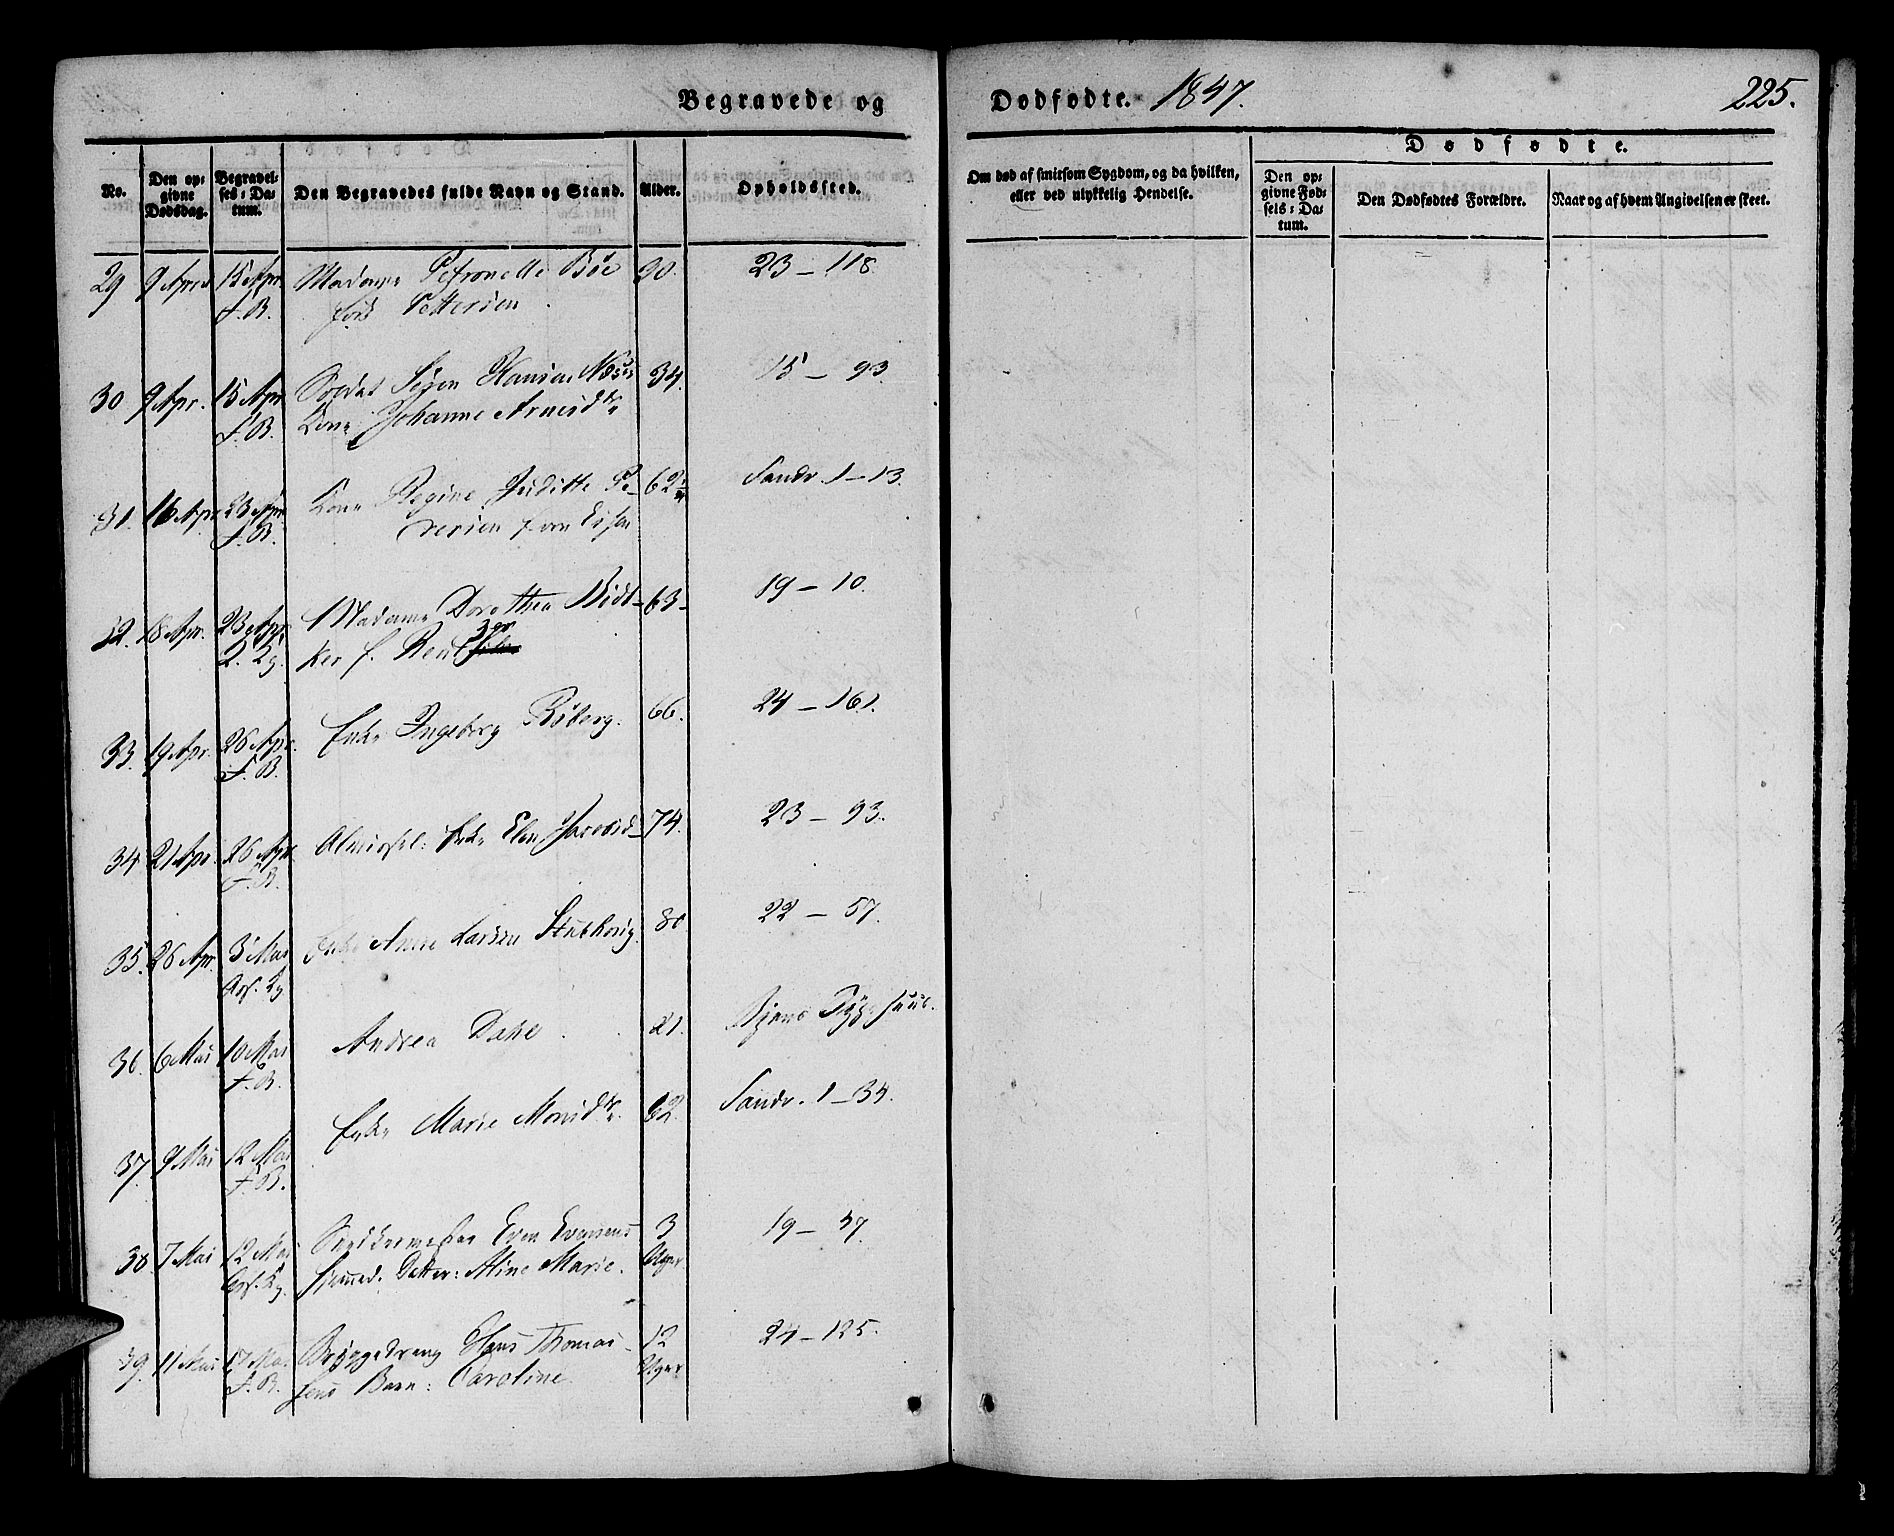 Begravede og Dødfødte. 1847. 225.
No.
Den op-
givne
Dødsdag.
Begravel-
ses-Da-
tum.
Den Begravedes fulde Navn og Stand.
Alder.
Opholdssted.
Om død af smitsom Sygdom, og da hvilken,
eller ved ulykkelig Hendelse.
Dødfødte.
Den op-
givne Fød-
sels-Da-
tum.
Den Dødfødtes Forældre.
Naar og af hvem Angivelsen er skeet.
29 9 April 15 Apr. Madame Petronelle Böe 90. 23 – 118.
F. B. fød Pettersen.
30 9 Apr. 15 Apr. Soldat Hansen 34. 15 – 93.
F. B. Kone Johanne Arnesdtr
31. 16 Apr. 23 Apr. Kone Regine Juditte Pe- 62 Sandv. 1 – 13.
F. B. tersen f. von
32. 18 Apr. 23 Apr. Madame Dorothea 63 19 – 10.
D. Kg. ker f.
33. 19 Apr. 26 Apr. Enke Ingeborg Röberg. 66. 24 – 161.
F. B.
34 21 Apr. 26 Apr. Almissel: Enke Elen Jacobsd 74. 23 – 93.
F. B.
35. 26 Apr. 3 Mai Enke Anne Larsen 80 22 – 57.
Kg
36. 6 Mai 10 Mai Andrea Dahl. 21.
F. B.
37. 9 Mai 12 Mai Enke Marie Monsdtr. 62. Sandv. 1 – 34.
F. B.
38. 7 Mai 12 Mai Snedkermester Even Evensens 3 19 – 37.
Kg. Datter: Aline Marie. Uger
39. 11 Mai 17 Mai Bryggedreng Hans Thomas- 12 24 – 125.
F. B. sens Barn: Caroline. Uger